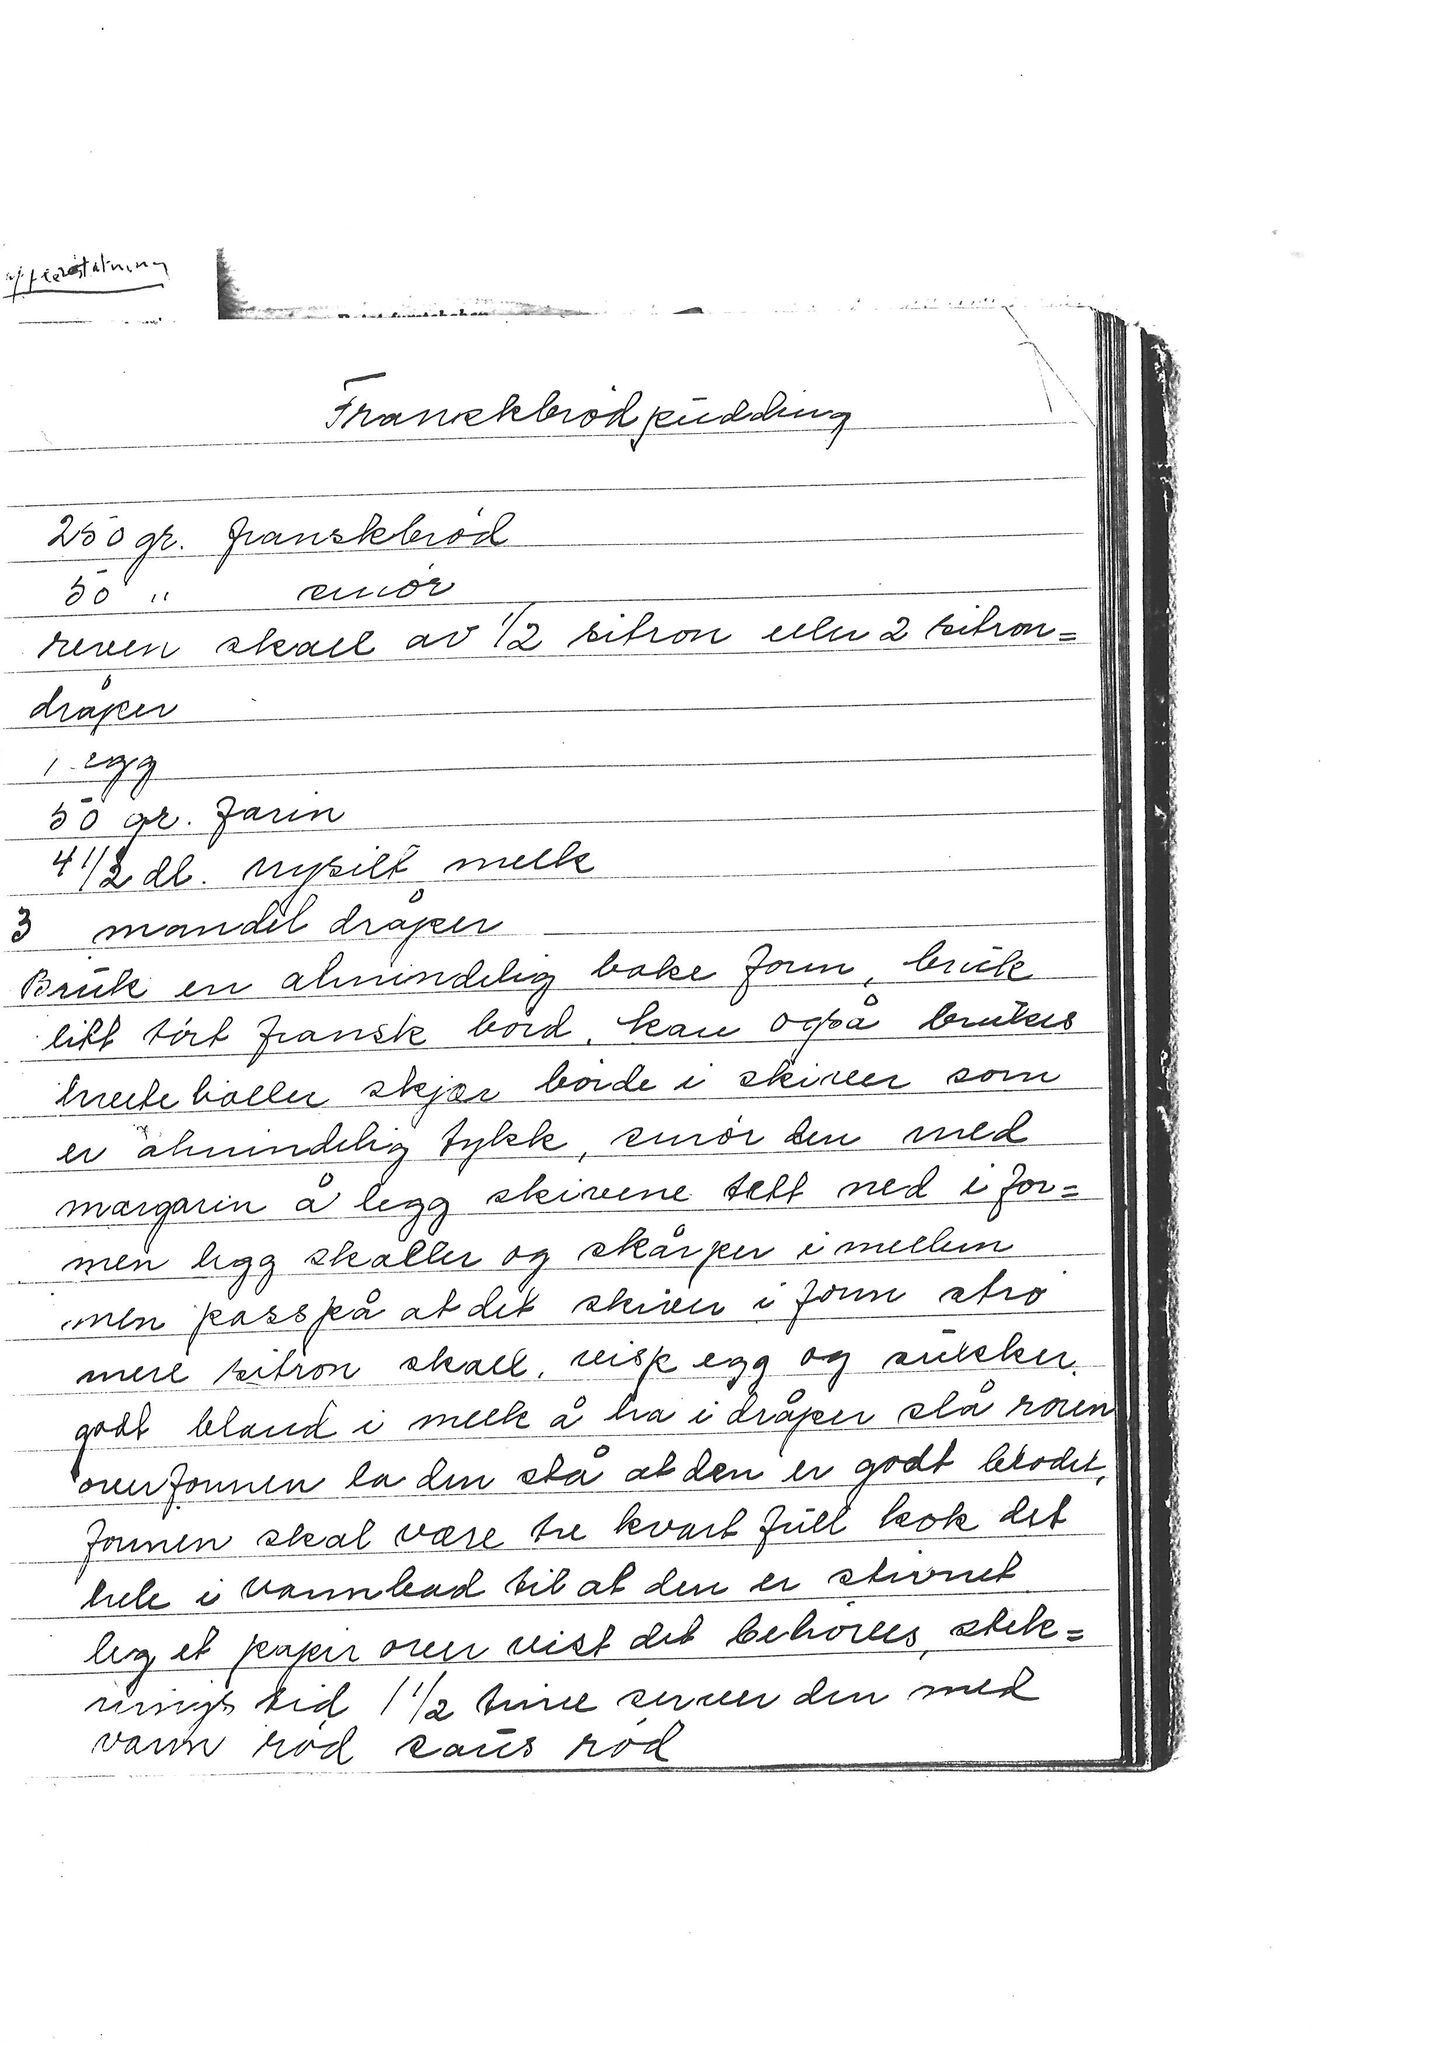 Franskbrødpudding
250 gr. franskbrød
50 " smør
reven skall av 1/2 sitron eller 2 sitron=
dråper
1 egg
50 gr. farin
4 1/2 dl. nysilt melk
3 mandel dråper
Bruk en almindelig bake form, bruk
litt tørt fransk børd, kan også brukes
hvete boller skjær børde i skiver som
er almindelig tykk, smør den med
margarin å legg skivene tett ned i for=
men legg skaller og skårper i mellem
men passpå at det skiver i form strø
mere sitron skall. visp egg og sukker
godt bland i melk å ha i dråper slå røren
over formen la den stå at den er godt blødet,
formen skal være tre kvart full kok det
hele i vannbad til at den er stivnet
leg et papir over vist det behøves, stek=
nings tid 1 1/2 time server den med
vann rød saus rød